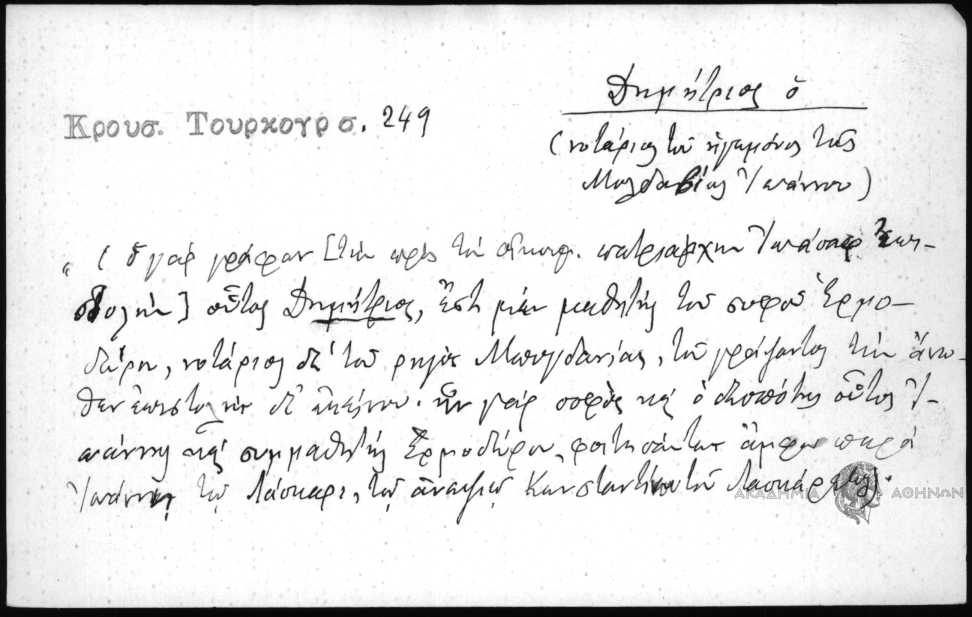 Δημήτριος ὁ
Κρουσ. Τουρκογρσ. 249
(νοτάριος τοῦ ἡγεμόνος τῆς
Μολδαβίας Ἰωάννου)
" (ὁ γὰρ γράφων [τὴν πρὸς τὸν οἰκουμ. πατριάρχην Ἰωάσαφ ἐπι-
στολὴν] οὗτος Δημήτριος, ἔστι μὲν μαθητὴς τοῦ σοφοῦ Ἑρμο-
δώρου, νοτάριος δὲ τοῦ ῥηγὸς Μπογδανίας, τοῦ γράψαντος τὴν ἄνω-
θεν ἐπιστολὴν δι' ἐκείνου. ἦν γὰρ σοφὸς καὶ ὁ δεσπότης οὗτος Ἰ-
ωάννης καὶ συμμαθητὴς Ἑρμοδώρου, φοιτησάντων ἄμφω παρὰ
Ἰωάννῃ τῷ Λάσκαρι, τῷ ἀνεψιῷ Κωνσταντίνου τοῦ Λασκάρεως).
ΑΚΑΔΗΜΙΑ ΑΘΗΝΩΝ